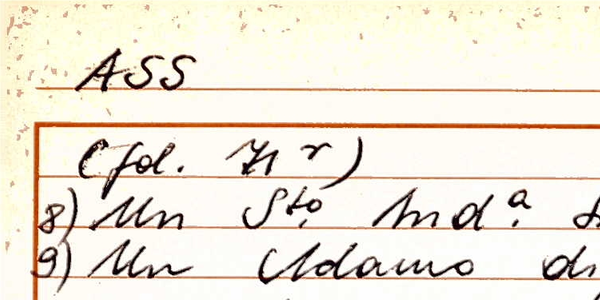 ASS
(fol. 71 r)
8) Un Sto. And.a
9) Un Adamo di